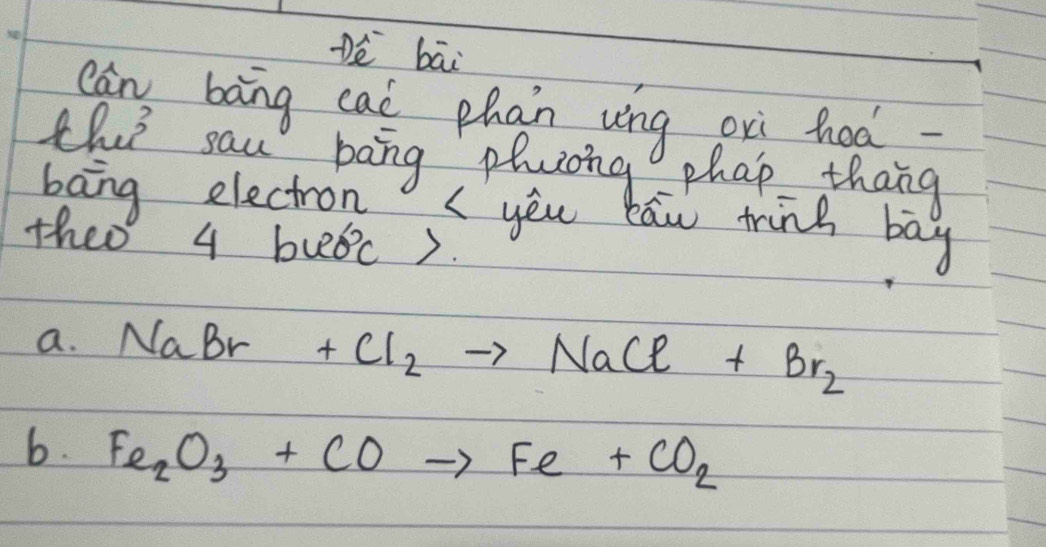 Đề bài
Cân bằng các phản ứng oxi hoá -
khử sau bằng phương pháp thăng
bằng electron < yêu cầu trình bày
theo 4 bước >.
a. NaBr + Cl₂ → NaCl + Br₂
b. Fe₂O₃ + CO → Fe + CO₂